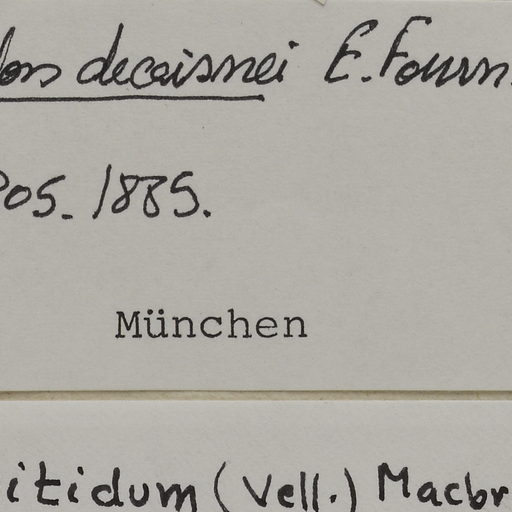 decaisnei E. Fourn.
205. 1885.
München
itidum (Vell.) Macbr